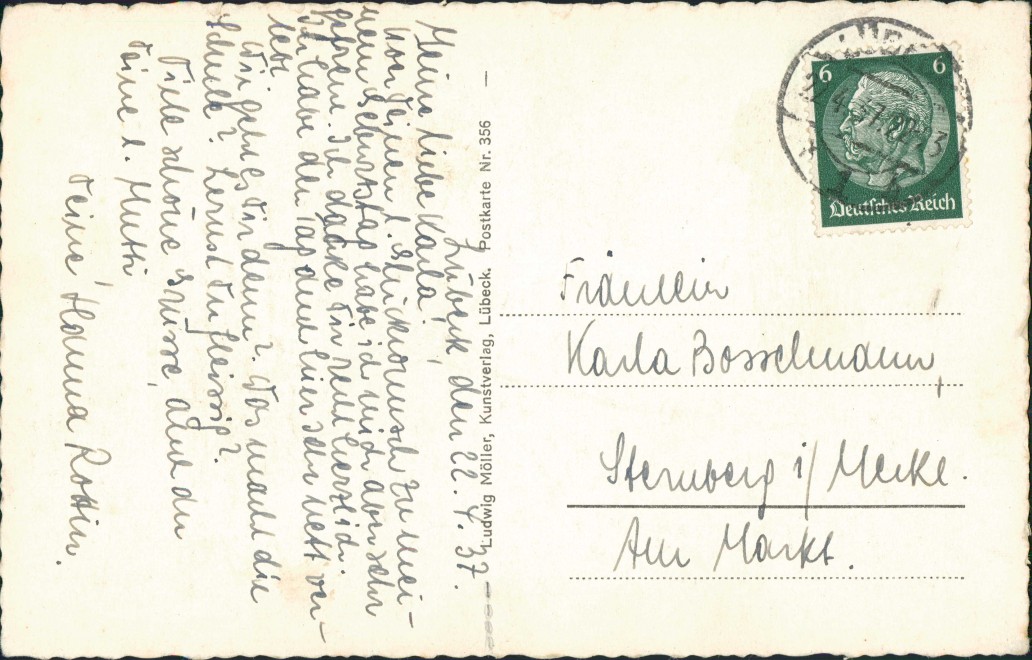 Lübeck, den 22.4.37.
Meine liebe Karla!
Über Deinen l. Glückwunsch zu mei-
nem Geburtstag habe ich mich aber sehr
gefreut. Ich danke Dir recht herzlich.
Ich habe den Tag auch hier sehr nett ver-
lebt
Wie geht es Dir denn? Was macht die
Schule? Lernst Du fleissig?
Viele schöne Grüsse, auch an
Deine l. Mutti
Deine Hanna
Ludwig Möller, Kunstverlag, Lübeck. Postkarte Nr. 356
6 6
Deutsches Reich
LÜBECK
Fräulein
Karla Bosselmann,
Sternberg i/ Meckl.
Am Markt.